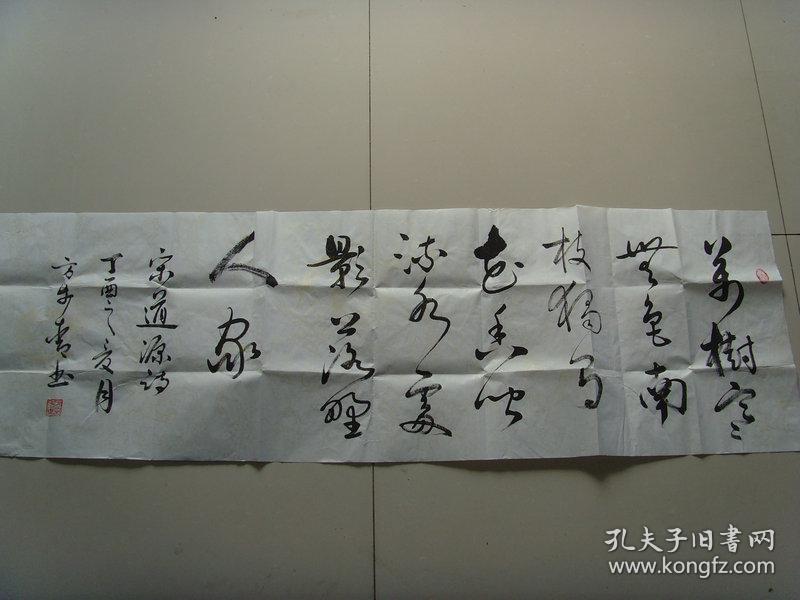 萬樹寒
無色南
枝獨有
花香聞
流水處
影落野
人家
宋道源詩
丁酉之夏月
方步书
孔夫子旧书网
www.kongfz.com